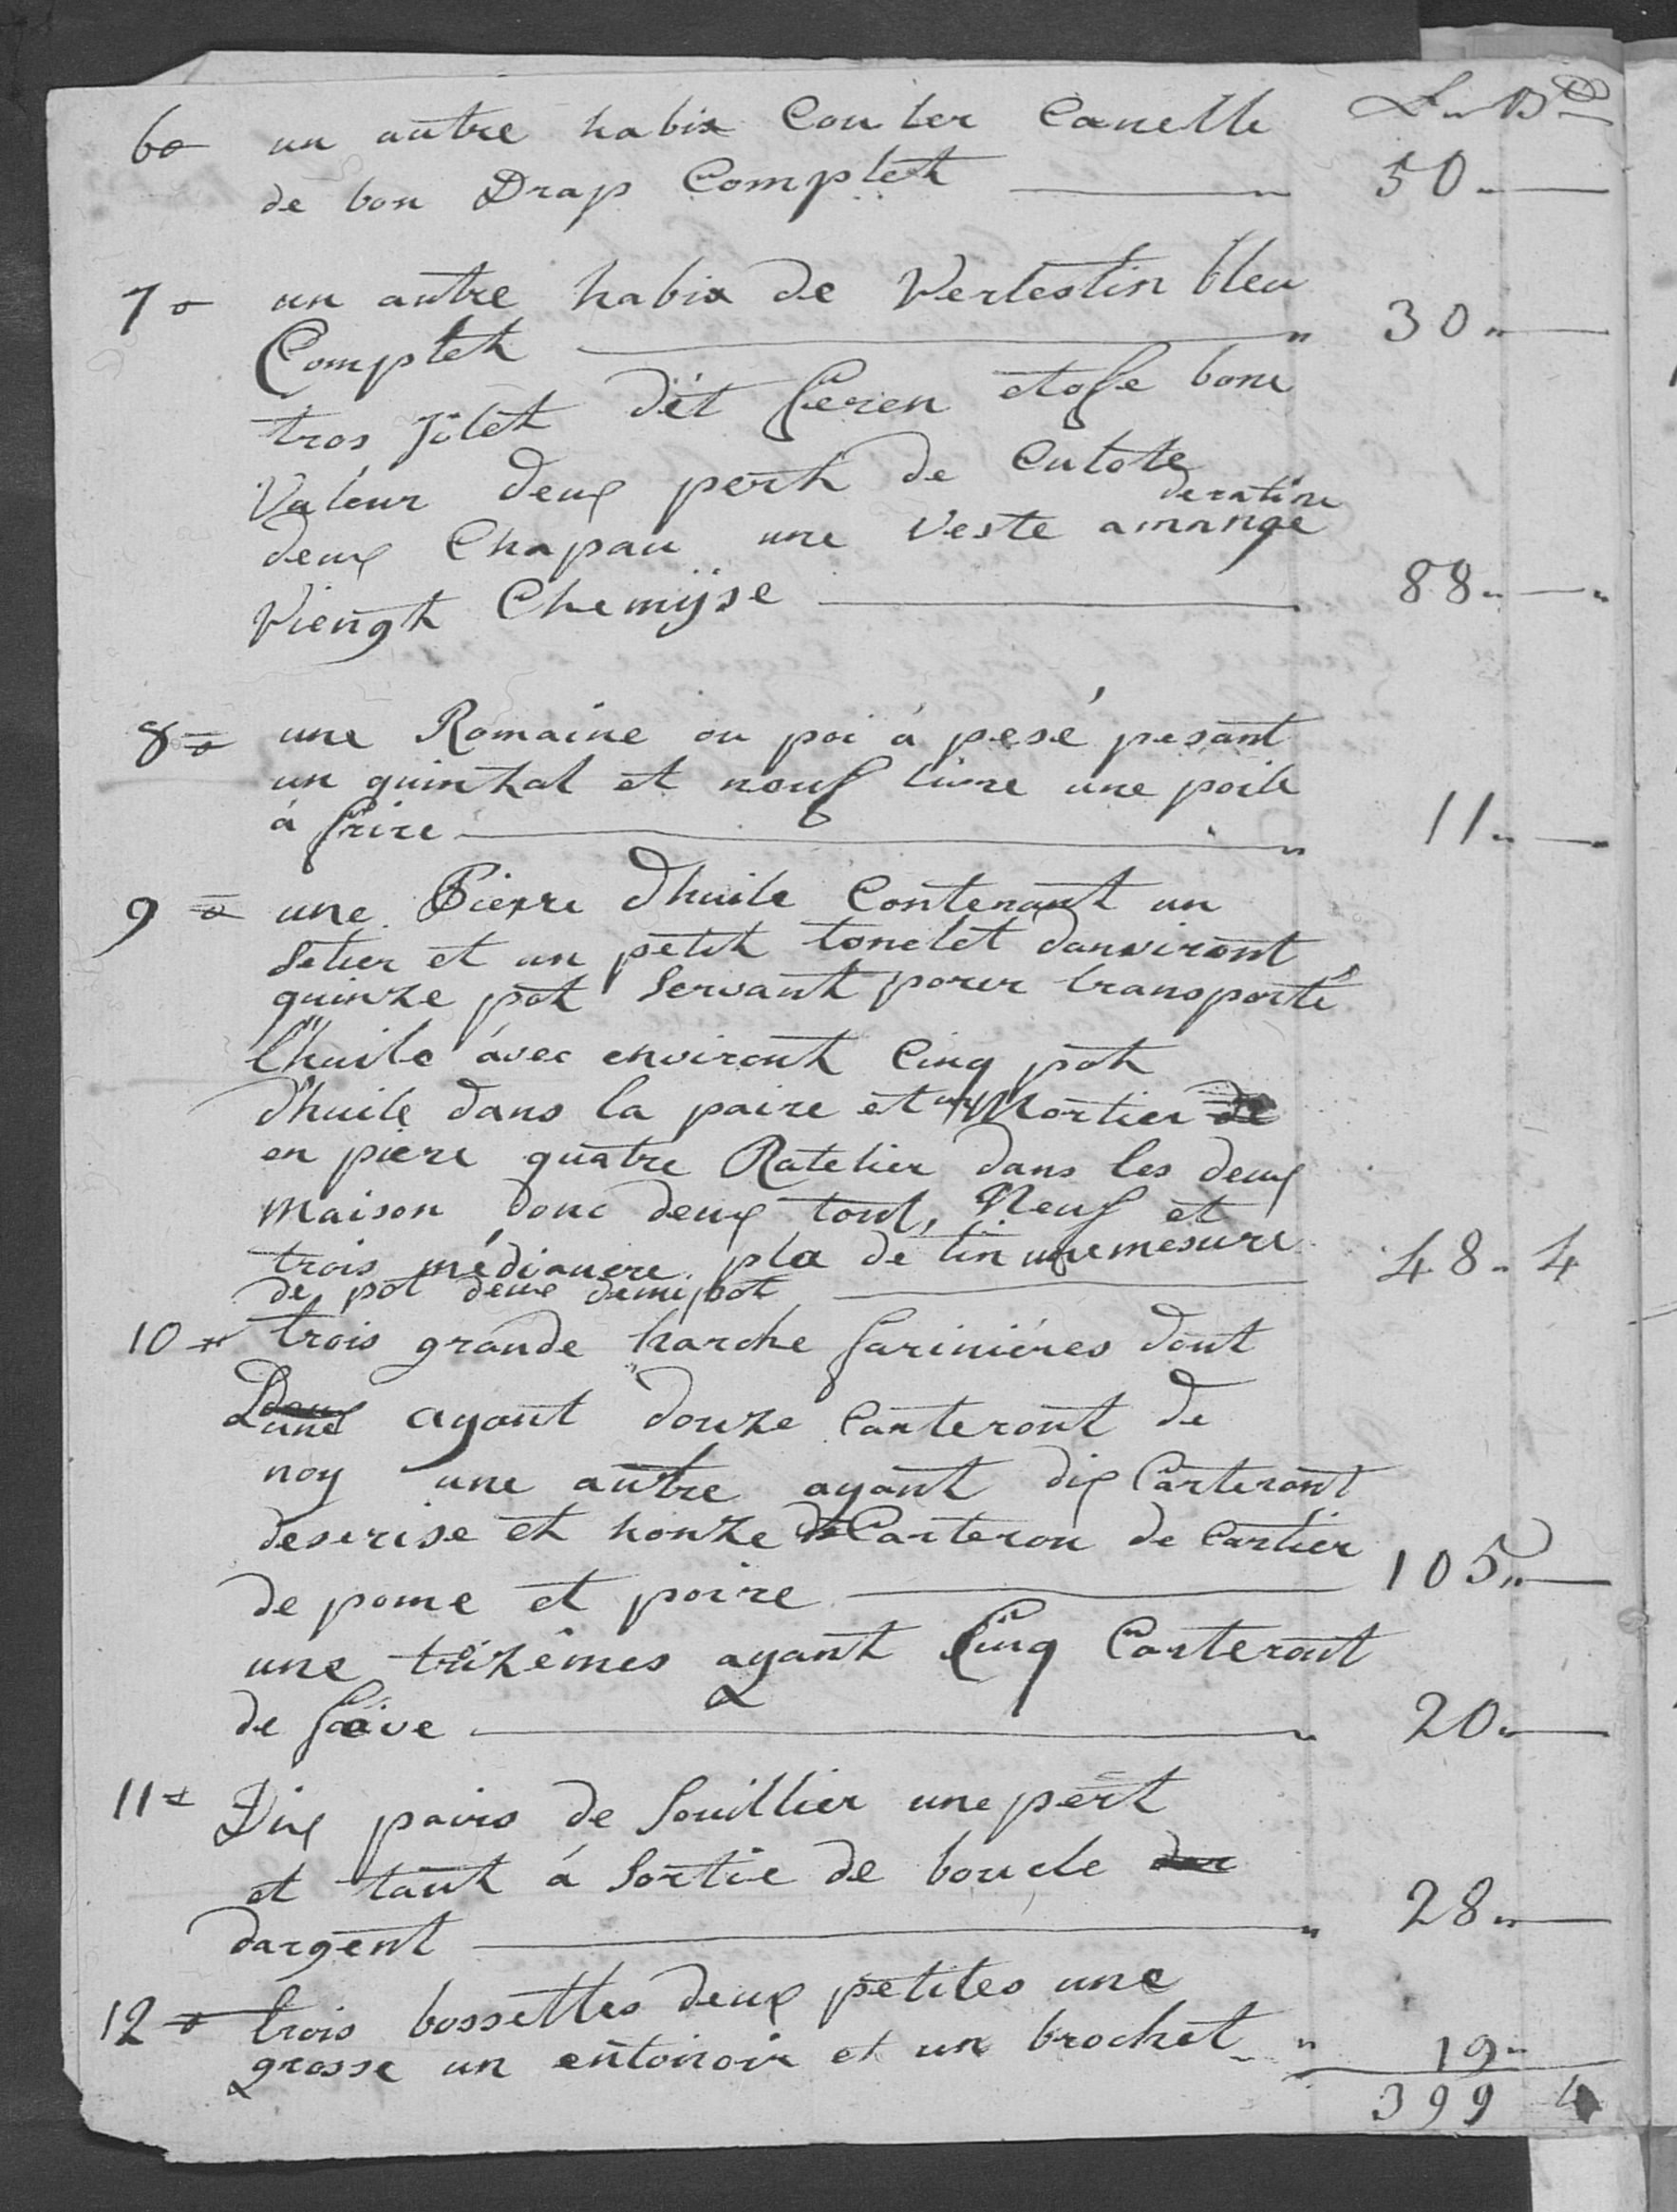 L. Bz
6o un autre habix Couler Canelle
de bon Drap Completh 50
7o un autre habix de Verlestin bleu
Completh 30
tros jilet dèt Seren etofe bone
Valeur deux perh de Culote
deux Chapau une Veste deratine amrange
Viength Chemijse 88
8o une Romaine ou poi á pesé pesant
un quinthal et nouf livre une poile
á frire 11
9o une Pierre dhuile Contenant un
Setier et un petit tonelet danviront
quinze pot Servant pour transporté
l'huile ávec environt Cinq poth
d'huile dans la paire et un Mortier de
en piere quatre Ratelier dans les deux
Maison donc deux tout, Neuf et
trois médiancre pla de tin une mesure
de pot deux demi pot 48 4
10 trois grande harche farinières dont
Lune ayant douze Carteront de
noy une autre ayant dix Carteront
deserise eth honze Carteron de Cartier
de pome et poire 105
une trizêmes ayant Cinq Carteront
de faive 20
11 Dix pairs de Souillier une pert
et tant á Sortie de boucle
dargent 28
12 trois bossettes deux petites une
grosse un entonoir et un brochet 19
399 4